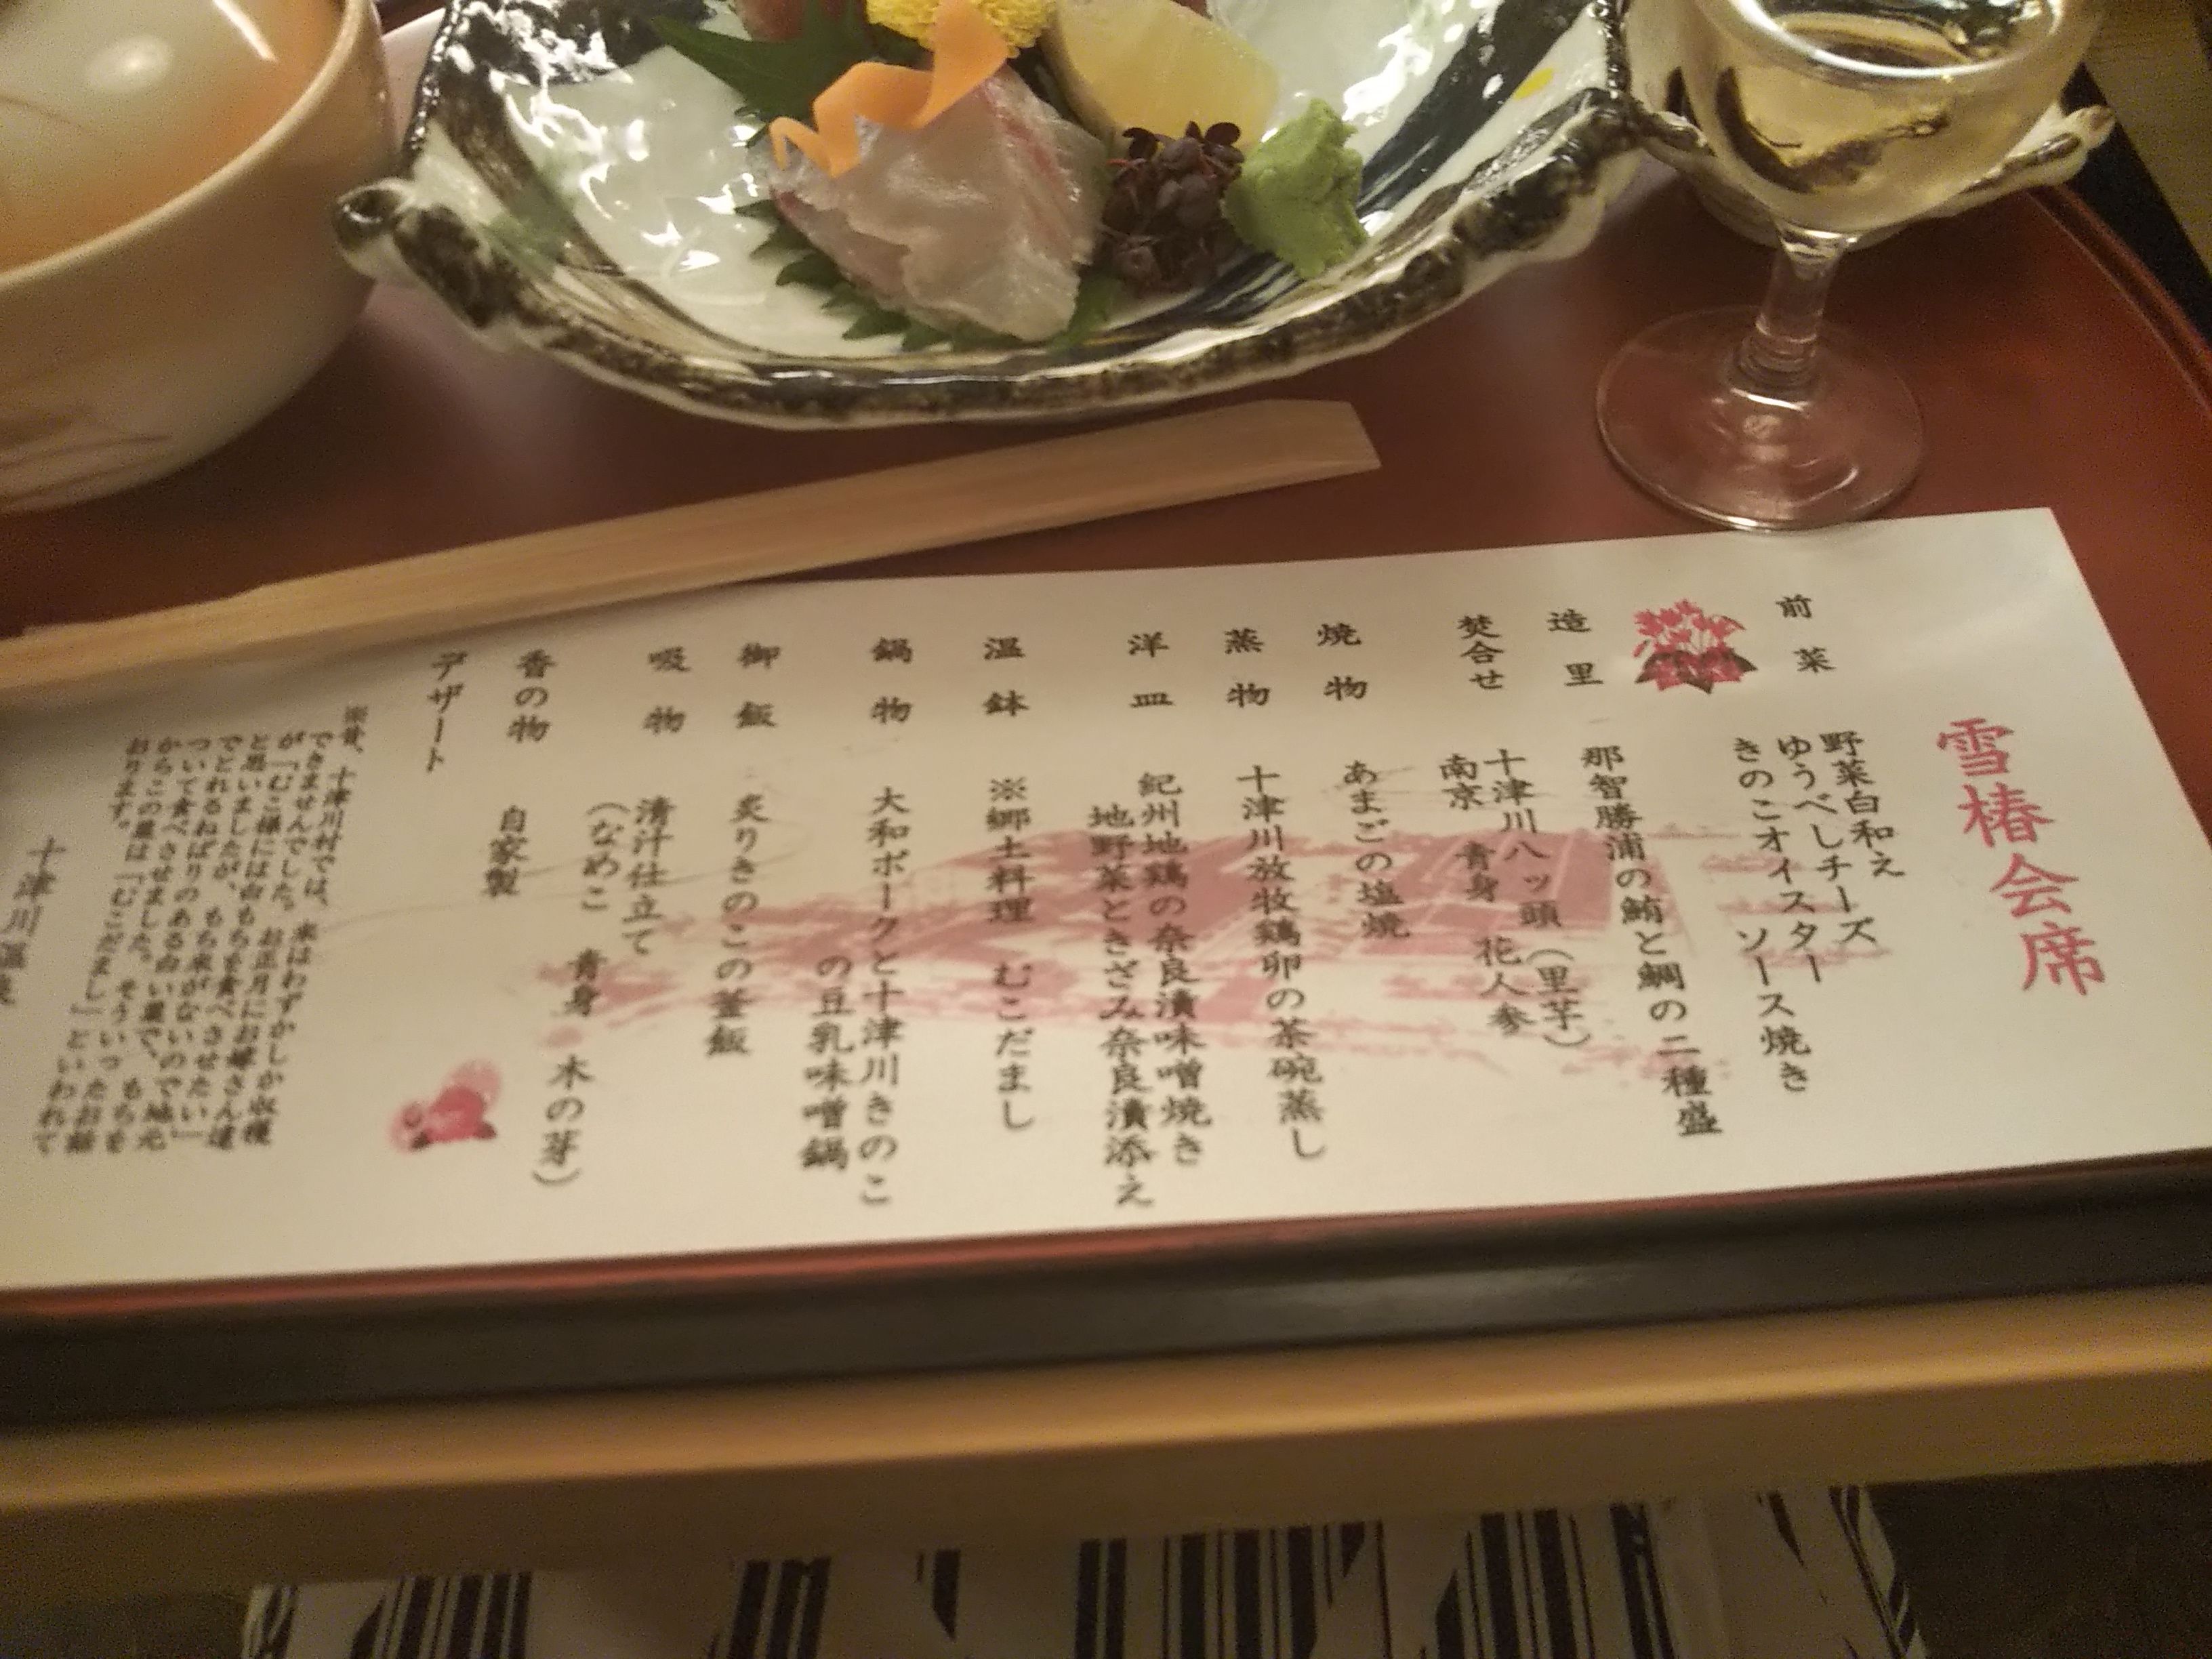 雪椿会席
前菜
野菜白和え
ゆうべしチーズ
きのこオイスターソース焼き
造里
那智勝浦の鮪と鯛の二種盛
焚合せ
十津川八ッ頭（里芋）
南京 青身 花人参
焼物
あまごの塩焼
蒸物
十津川放牧鶏卵の茶碗蒸し
洋皿
紀州地鶏の奈良漬味噌焼き
地野菜ときざみ奈良漬添え
温鉢
※郷土料理 むこだまし
鍋物
大和ポークと十津川きのこ
の豆乳味噌鍋
御飯
炙りきのこの釜飯
吸物
清汁仕立て
（なめこ 青身 木の芽）
香の物
自家製
デザート
十津川村では、米はわずかしか収穫
できませんでした。お正月にお嫁さん達
が「むこ様には白もちを食べさせたい」
と思いましたが、もち米がないので地元
でとれるねばりのある白い粟で、もちを
ついて食べさせました。そういったお話
からこの粟は「むこだまし」といわれて
おります。
十津川温泉